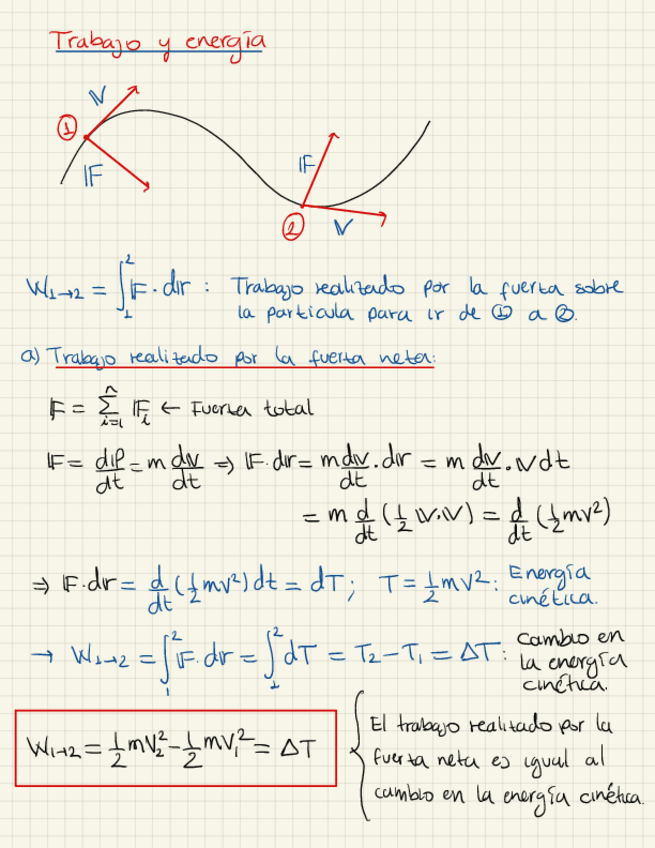 Trabajo y energía
V
①
F
F
②
V
W₁→₂ = ∫₁² F · dr : Trabajo realizado por la fuerza sobre
la partícula para ir de ① a ②.
a) Trabajo realizado por la fuerza neta:
F = Σᵢ₌₁ⁿ Fᵢ ← Fuerza total
F = dP/dt = m dV/dt ⇒ F·dr = m dV/dt · dr = m dV/dt · V dt
= m d/dt (½ V·V) = d/dt (½mv²)
⇒ F·dr = d/dt (½mv²) dt = dT; T = ½mv²: Energía
cinética.
→ W₁→₂ = ∫₁² F·dr = ∫₁² dT = T₂ − T₁ = ΔT: cambio en
la energía
cinética.
W₁→₂ = ½mv₂² − ½mv₁² = ΔT
El trabajo realizado por la
fuerza neta es igual al
cambio en la energía cinética.